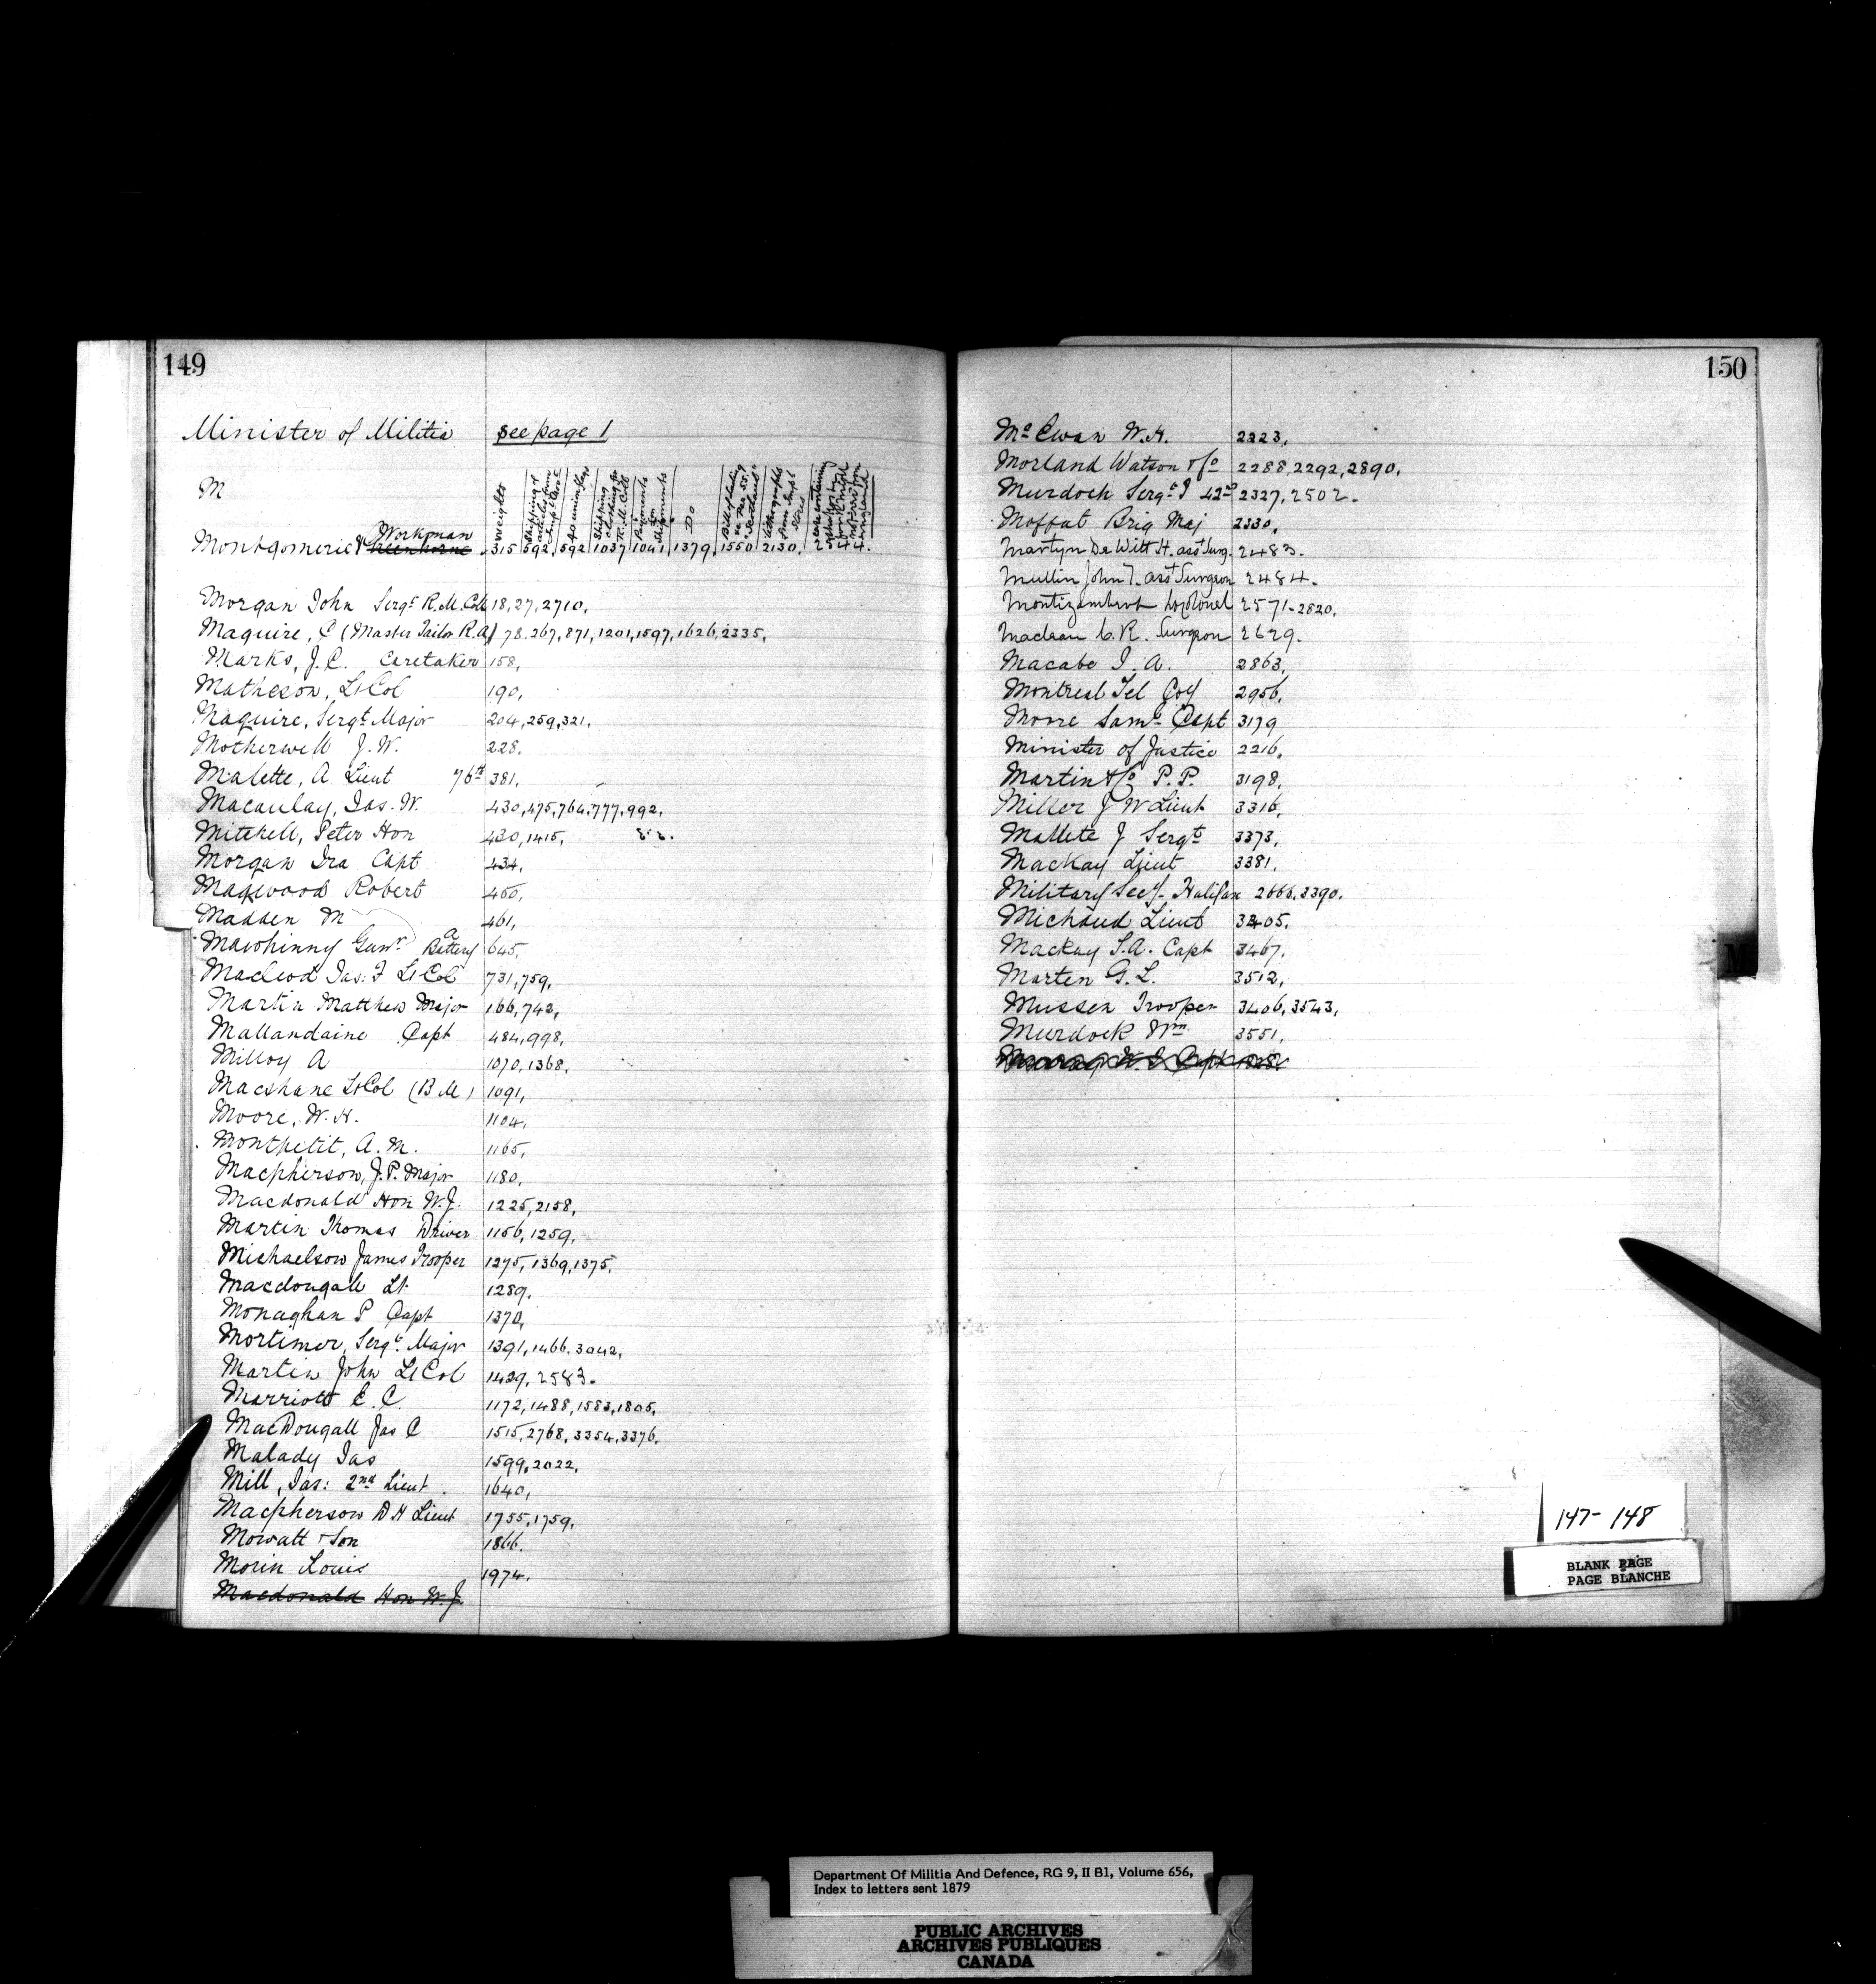 149
Minister of Militia see page 1
M
weights
Shipping of articles from
40 min
Shipping clothing for R. M. Coll
Payments for Shipments
Do
Bill of lading "Scotland"
Lithographs from Impl Stores
case containing
England
Workman
Montgomerie & Greenhorne 315, 592, 592, 1037, 1041, 1379, 1550, 2130, 2544.
Morgan John Sergt R.M. Coll 18, 27, 2710,
Maguire, C (Master Tailor R.A) 78, 267, 871, 1201, 1597, 1626, 2335,
Marks, J.C. Caretaker 158,
Matheson, Lt Col 190,
Maguire, Sergt Major 204, 259, 321,
Motherwell J. W. 228.
Malette, A Lieut 76th 381,
Macaulay, Jas. W. 430, 475, 764, 777, 992,
Mitchell, Peter Hon 430, 1415,
Morgan Ira Capt 434,
Magwood Robert 450,
Madden M 461,
Mawhinny Gunr a Battery 645,
Macleod Jas: F Lt Col 731, 759,
Martin Matthew Major 166, 742,
Mallandaine Capt 484, 998,
Milloy A 1070, 1368,
Macshane Lt Col (B M) 1091,
Moore, W. H. 1104,
Montpetit, A. M. 1165,
Macpherson, J. P. Major 1180,
Macdonald Hon W. J. 1225, 2158,
Martin Thomas Driver 1156, 1259,
Michaelson James Trooper 1275, 1369, 1375,
Macdougall Lt 1289,
Monaghan P Capt 1370,
Mortimer, Sergt Major 1391, 1466, 3042,
Martin John Lt Col 1429, 2583.
Marriott E. C. 1172, 1488, 1583, 1805,
MacDougall Jas C 1515, 2768, 3354, 3376,
Malady Jas 1599, 2022,
Mill, Jas: 2nd Lieut. 1640,
Macpherson D H Lieut 1755, 1759,
Mowatt & Son 1866.
Morin Louis 1974.
Macdonald Hon W. J.
150
McEwan W. H. 2223,
Morland Watson & Co 2288, 2292, 2890,
Murdoch Sergt J 42nd 2327, 2502.
Moffat Brig Maj 2330,
Martyn De Witt H. asst Surg. 2483.
Mullin John T. asst Surgeon 2484.
Montizambert Lt Colonel 2571-2820,
Maclean C. R. Surgeon 2629.
Macabe J. A. 2863,
Montreal Tel Coy 2956,
Moore Saml Capt 3179
Minister of Justice 2216,
Martin & Co P. P. 3198,
Miller J W Lieut 3316,
Mallete J Sergt 3373,
Mackay Lieut 3381,
Military Secy Halifax 2666, 3390.
Michaud Lieut 3405.
Mackay S. A. Capt 3467.
Marten G. L. 3512,
Mussen Trooper 3406, 3543,
Murdock Wm 3551,
M
147-148
BLANK PAGE
PAGE BLANCHE
Department Of Militia And Defence, RG 9, II B1, Volume 656,
Index to letters sent 1879
PUBLIC ARCHIVES
ARCHIVES PUBLIQUES
CANADA